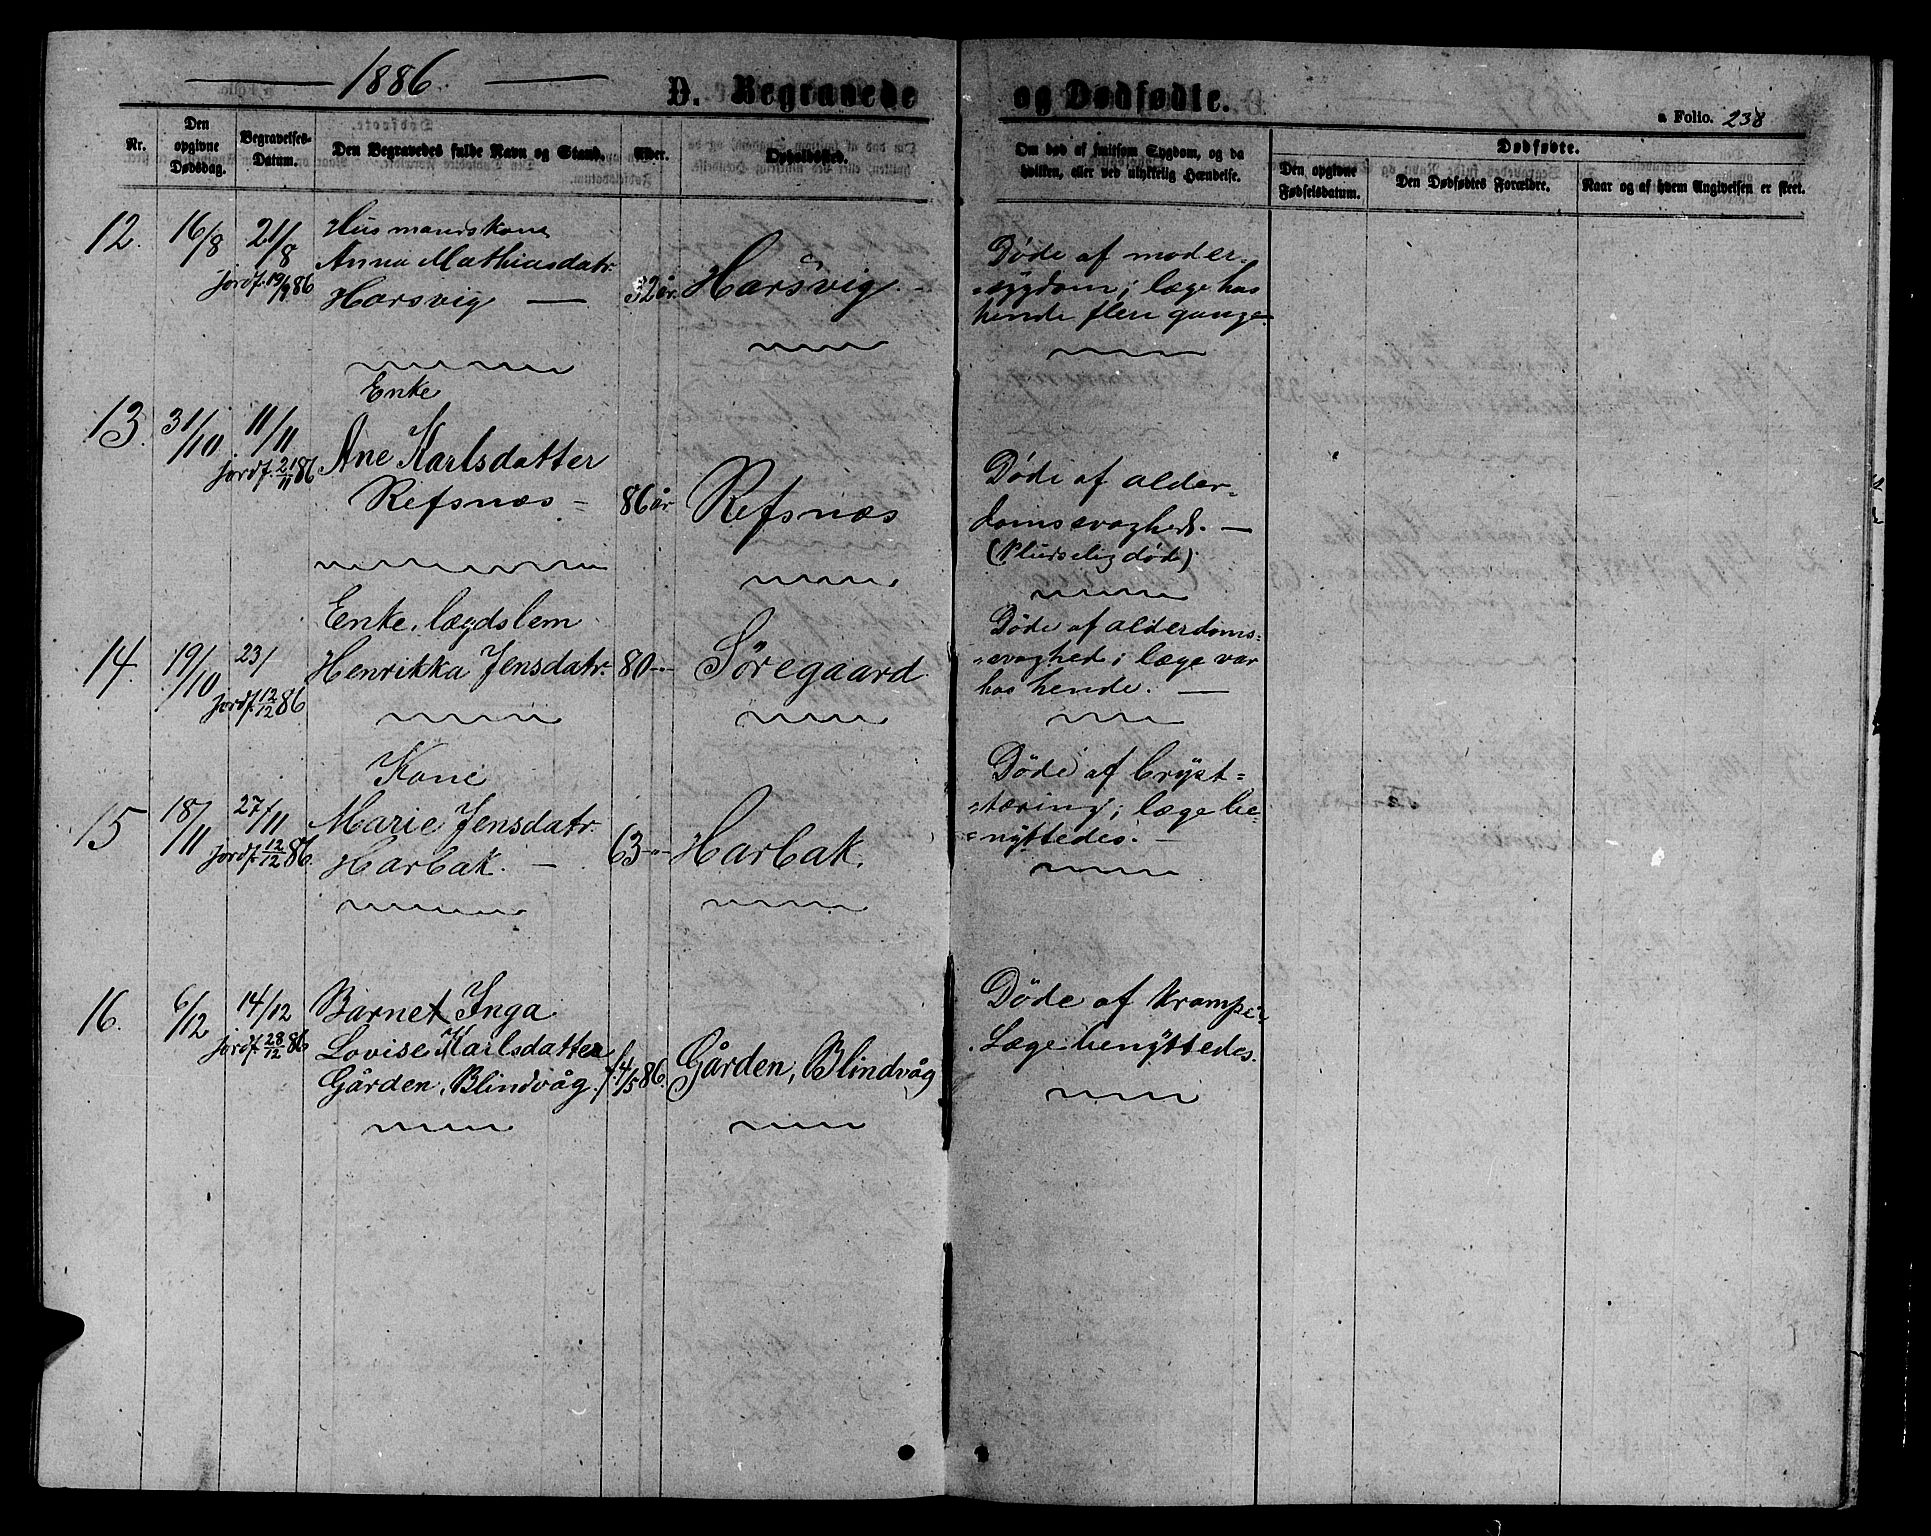 1886.
D. Begravede og Dødfødte.
a Folio. 238
Nr.
Den opgivne Dødsdag.
Begravelses-Datum.
Den Begravedes fulde Navn og Stand.
Alder.
Opholdssted.
Om død af smitsom Sygdom, og da hvilken, eller ved ulykkelig Hændelse.
Dødfødte.
Den opgivne Fødselsdatum.
Den Dødfødtes Forældre.
Naar og af hvem Angivelsen er skeet.
12. 16/8 21/8
jordf. 19/9 86
Husmandskone
Anna Mathiasdatr.
Harsvig —
32 år.
Harsvig. -
Døde af moder-
-sygdom; læge hos
hende flere gange.
13. 31/10 11/11
jordf. 21/11 86
Enke
Ane Karlsdatter
Refsnæs -
86 år
Refsnæs
Døde af alder-
domssvaghed. —
(Pludselig døde)
14. 19/10 23/
jordf. 12/12 86
Enke, lægdslem
Henrikka Jensdatr.
80 -"-
Søregaard
Døde af alderdoms=
=svaghed; læge var
hos hende. —
15 18/11 27/11
jordf. 12/12 86.
Kone
Marie Jensdatr.
Harbak. —
63 -"-
Harbak.
Døde af bryst=
=tæring; læge be=
=nyttedes. —
16. 6/12 14/12
jordf. 28/12 86
Barnet Inga
Lovise Karlsdatter
Gården, Blindvåg.
f. 4/5 86.
Gården, Blindvåg
Døde af Krampe;
Læge benyttedes.